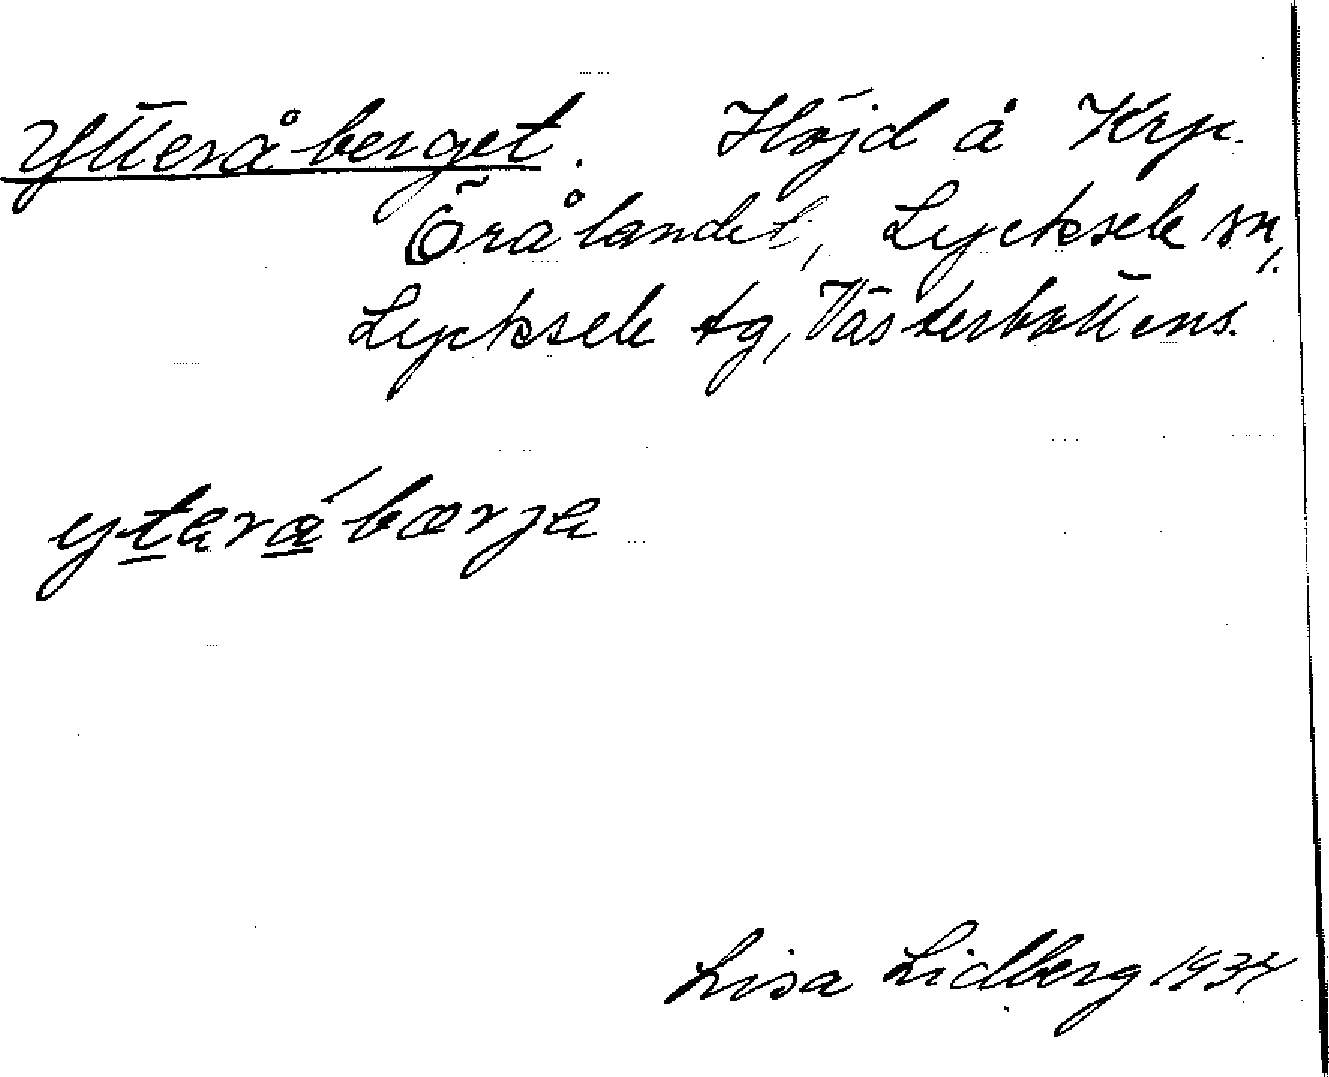 Ytteråberget. Höjd å Krp.
Öråland​et, Lycksele sn,
Lycksele tg, Västerbottens.
yterábærja
Lisa Lidberg 1937